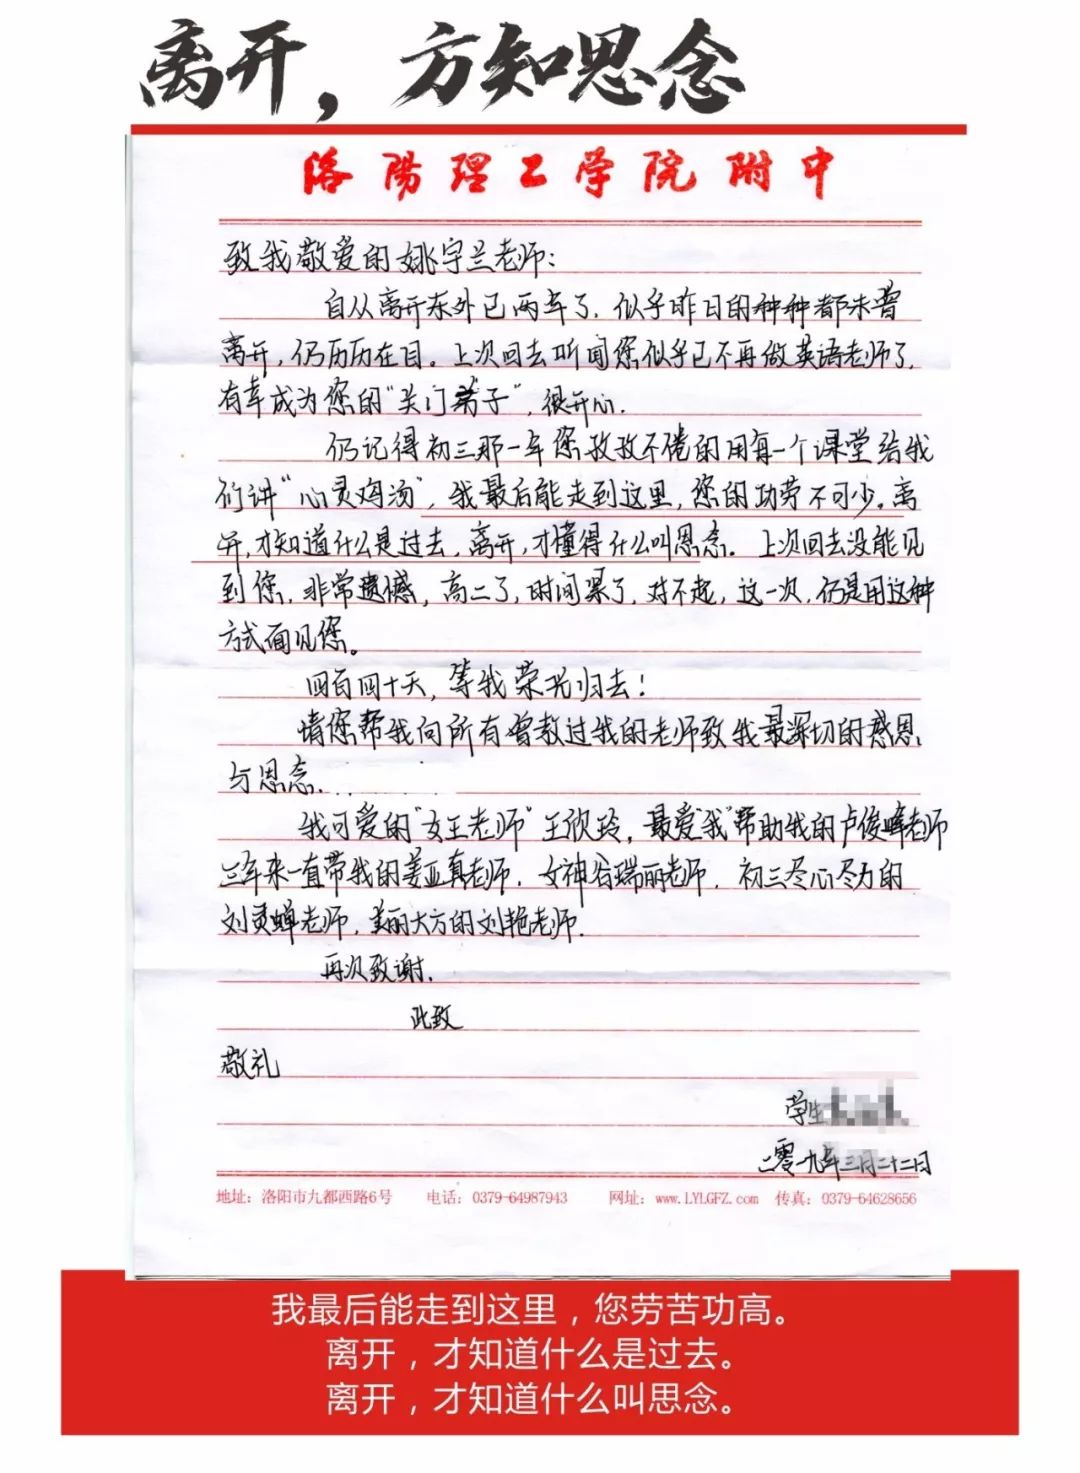 离开，方知思念
洛阳理工学院附中
致我敬爱的姚宇兰老师：
自从离开东外已两年了，似乎昨日的种种都未曾
离开，仍历历在目。上次回去听闻您似乎已不再做英语老师了，
有幸成为您的“关门弟子”，很开心．
仍记得初三那一年您孜孜不倦的用每一个课堂给我
们讲“心灵鸡汤”，我最后能走到这里，您的功劳不可少。离
开，才知道什么是过去，离开，才懂得什么叫思念。上次回去没能见
到您，非常遗憾，高二了，时间紧了，对不起，这一次，仍是用这种
方式面见您。
四百四十天，等我荣光归去！
请您帮我向所有曾教过我的老师致我最深切的感恩
与思念．
我可爱的“女王老师”王欣玲，最爱“我”帮助我的卢俊峰老师
三年来一直带我的姜亚真老师，女神谷瑞丽老师，初三尽心尽力的
刘灵蝉老师，美丽大方的刘艳老师．
再次致谢．
此致
敬礼
学生
二零一九年三月二十二日
地址：洛阳市九都西路6号 电话：0379-64987943 网址：www.LYLGFZ.com 传真：0379-64628656
我最后能走到这里，您劳苦功高。
离开，才知道什么是过去。
离开，才知道什么叫思念。